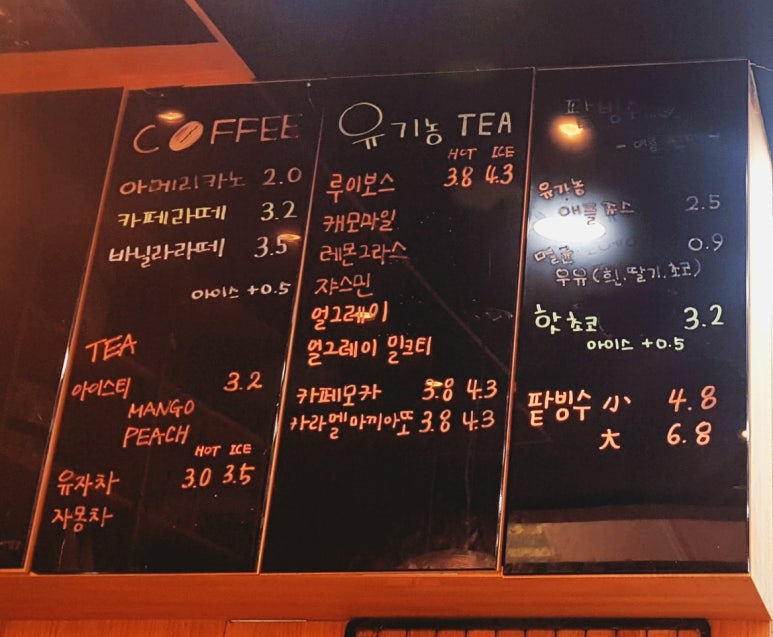 COFFEE
아메리카노 2.0
카페라떼 3.2
바닐라라떼 3.5
아이스 +0.5
TEA
아이스티 3.2
MANGO
PEACH
HOT ICE
유자차 3.0 3.5
자몽차
유기농 TEA
HOT ICE
루이보스 3.8 4.3
캐모마일
레몬그라스
쟈스민
얼그레이
얼그레이 밀크티
카페모카 3.8 4.3
카라멜마끼아또 3.8 4.3
팥빙수
유기농
애플쥬스 2.5
멸균 0.9
우유(흰.딸기.초코)
핫초코 3.2
아이스 +0.5
팥빙수 小 4.8
大 6.8